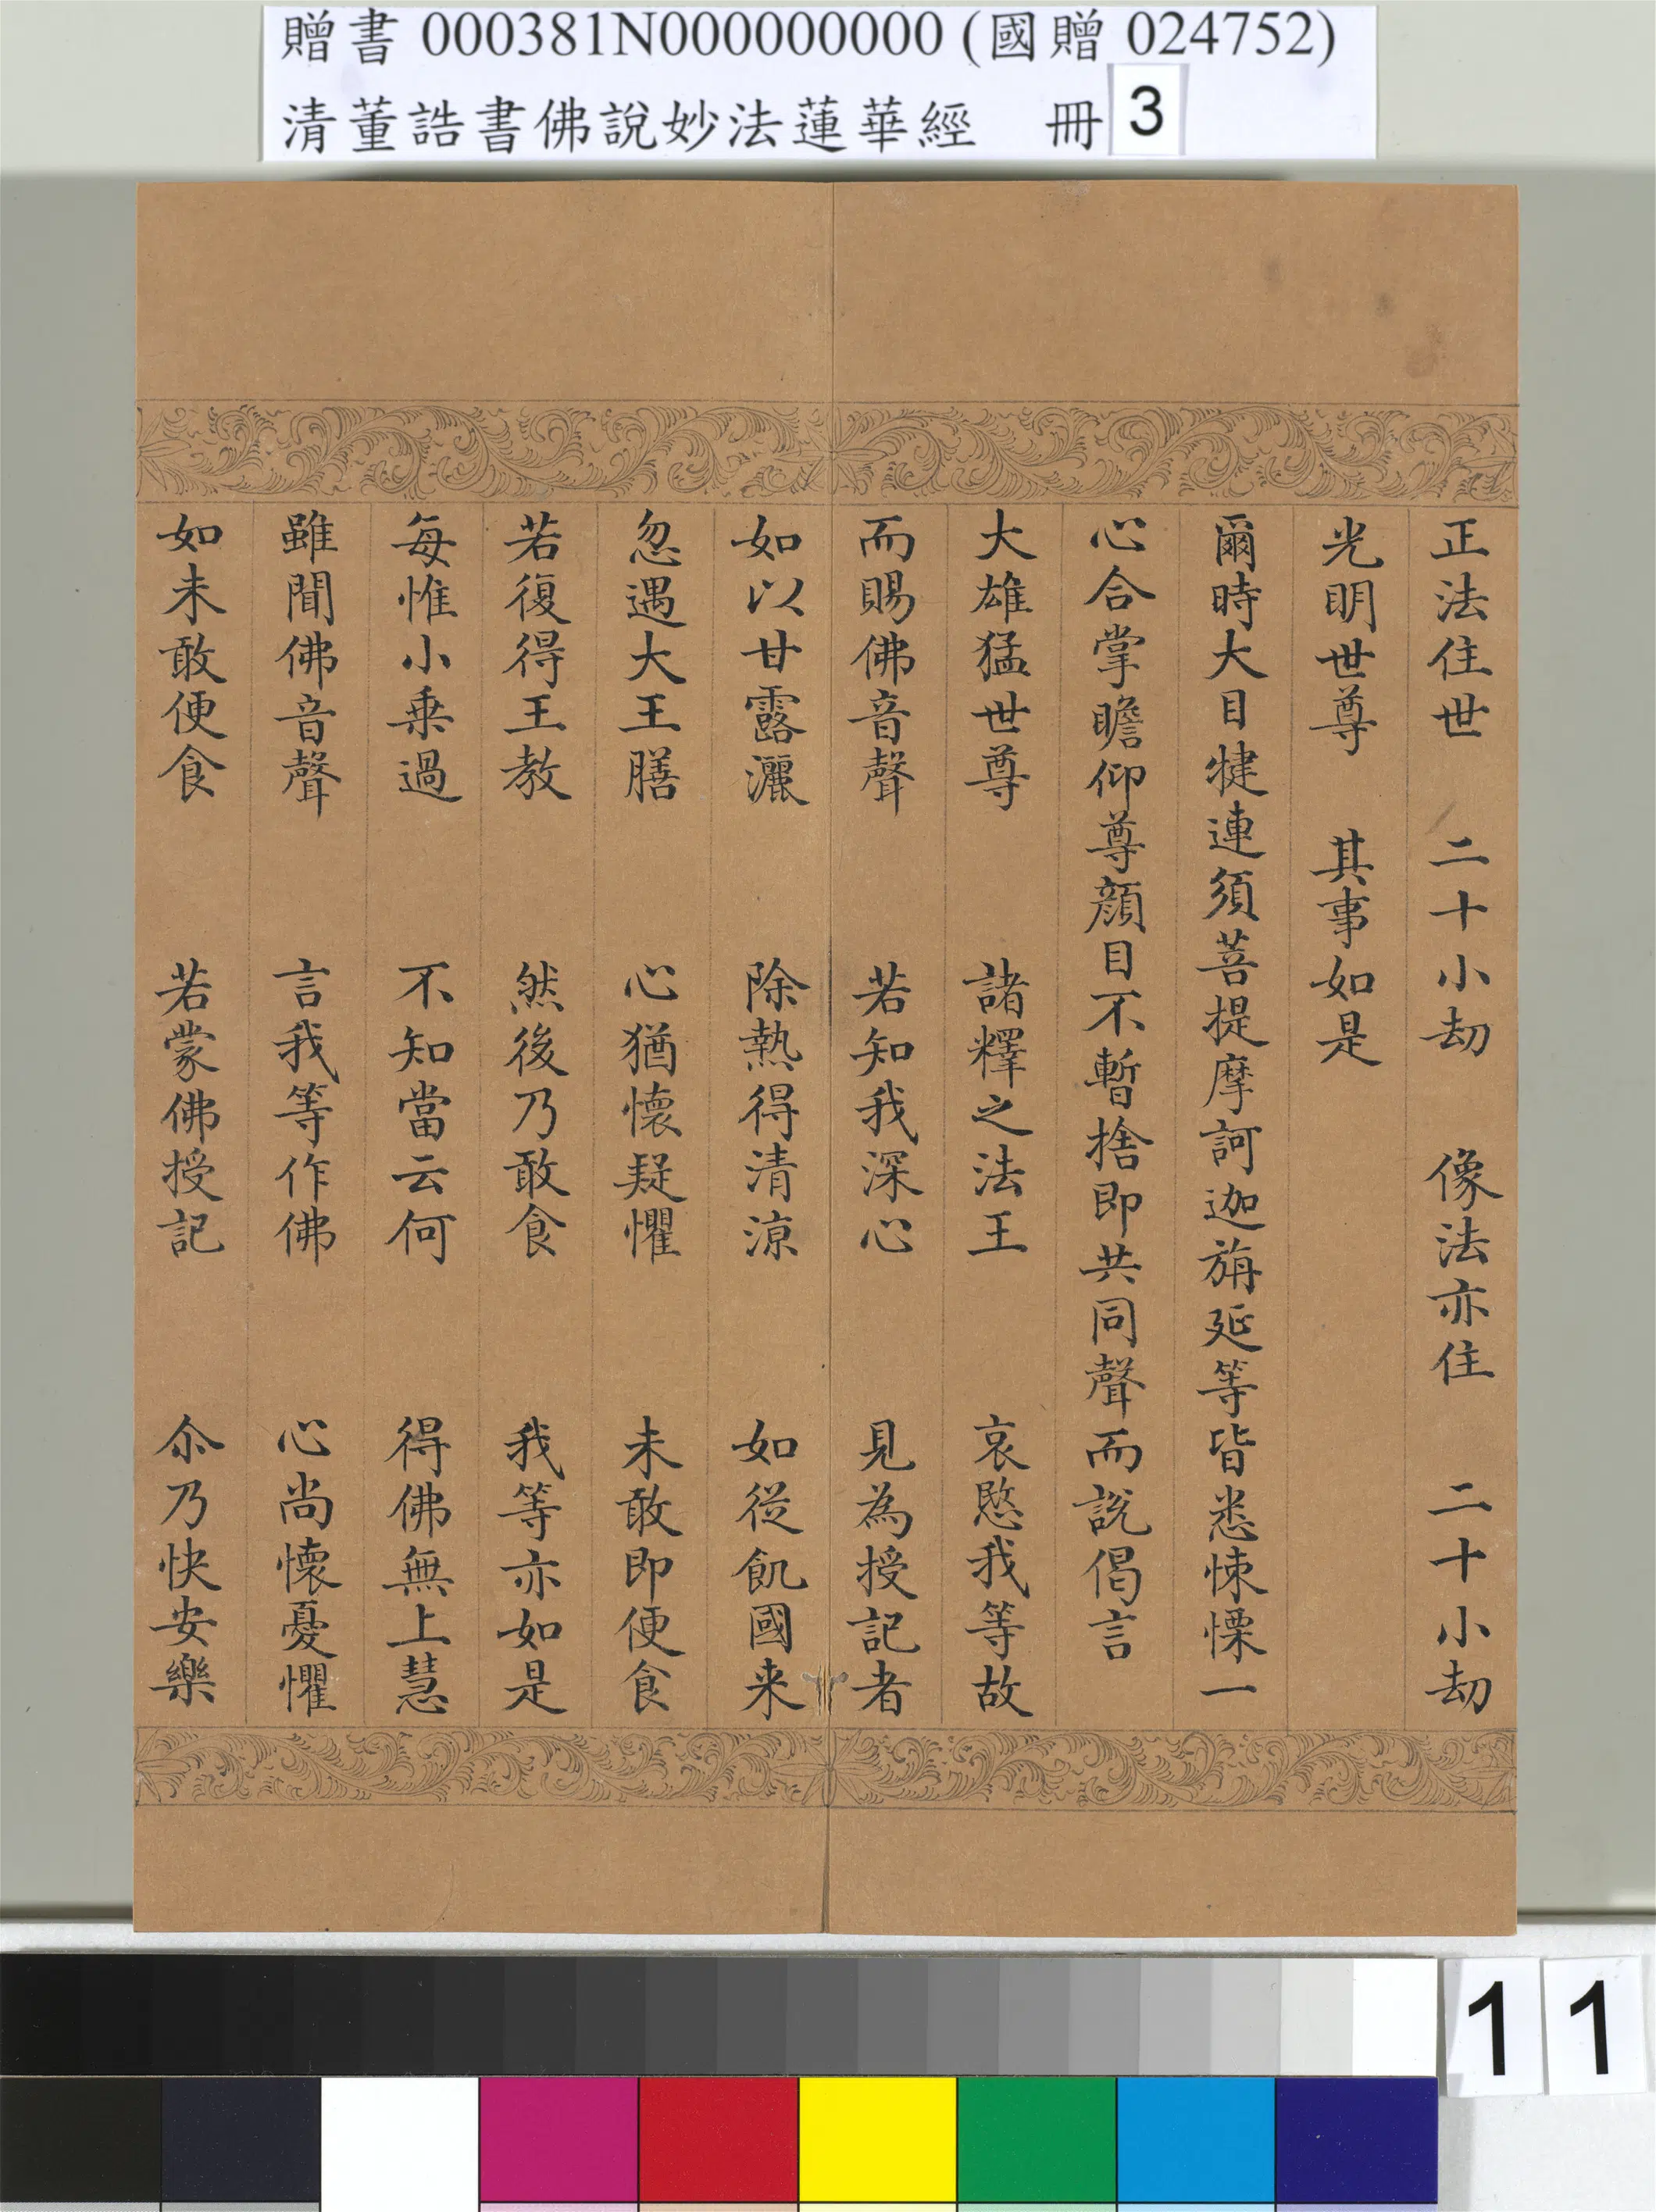 贈書 000381N000000000 (國贈 024752)
清董誥書佛說妙法蓮華經　冊 3
正法住世　二十小劫　像法亦住　二十小劫
光明世尊　其事如是
爾時大目犍連須菩提摩訶迦旃延等皆悉悚慄一
心合掌瞻仰尊顏目不暫捨即共同聲而說偈言
大雄猛世尊　諸釋之法王　哀愍我等故
而賜佛音聲　若知我深心　見為授記者
如以甘露灑　除熱得清涼　如從飢國来
忽遇大王膳　心猶懷疑懼　未敢即便食
若復得王教　然後乃敢食　我等亦如是
每惟小乗過　不知當云何　得佛無上慧
雖聞佛音聲　言我等作佛　心尚懷憂懼
如未敢便食　若蒙佛授記　尒乃快安樂
11